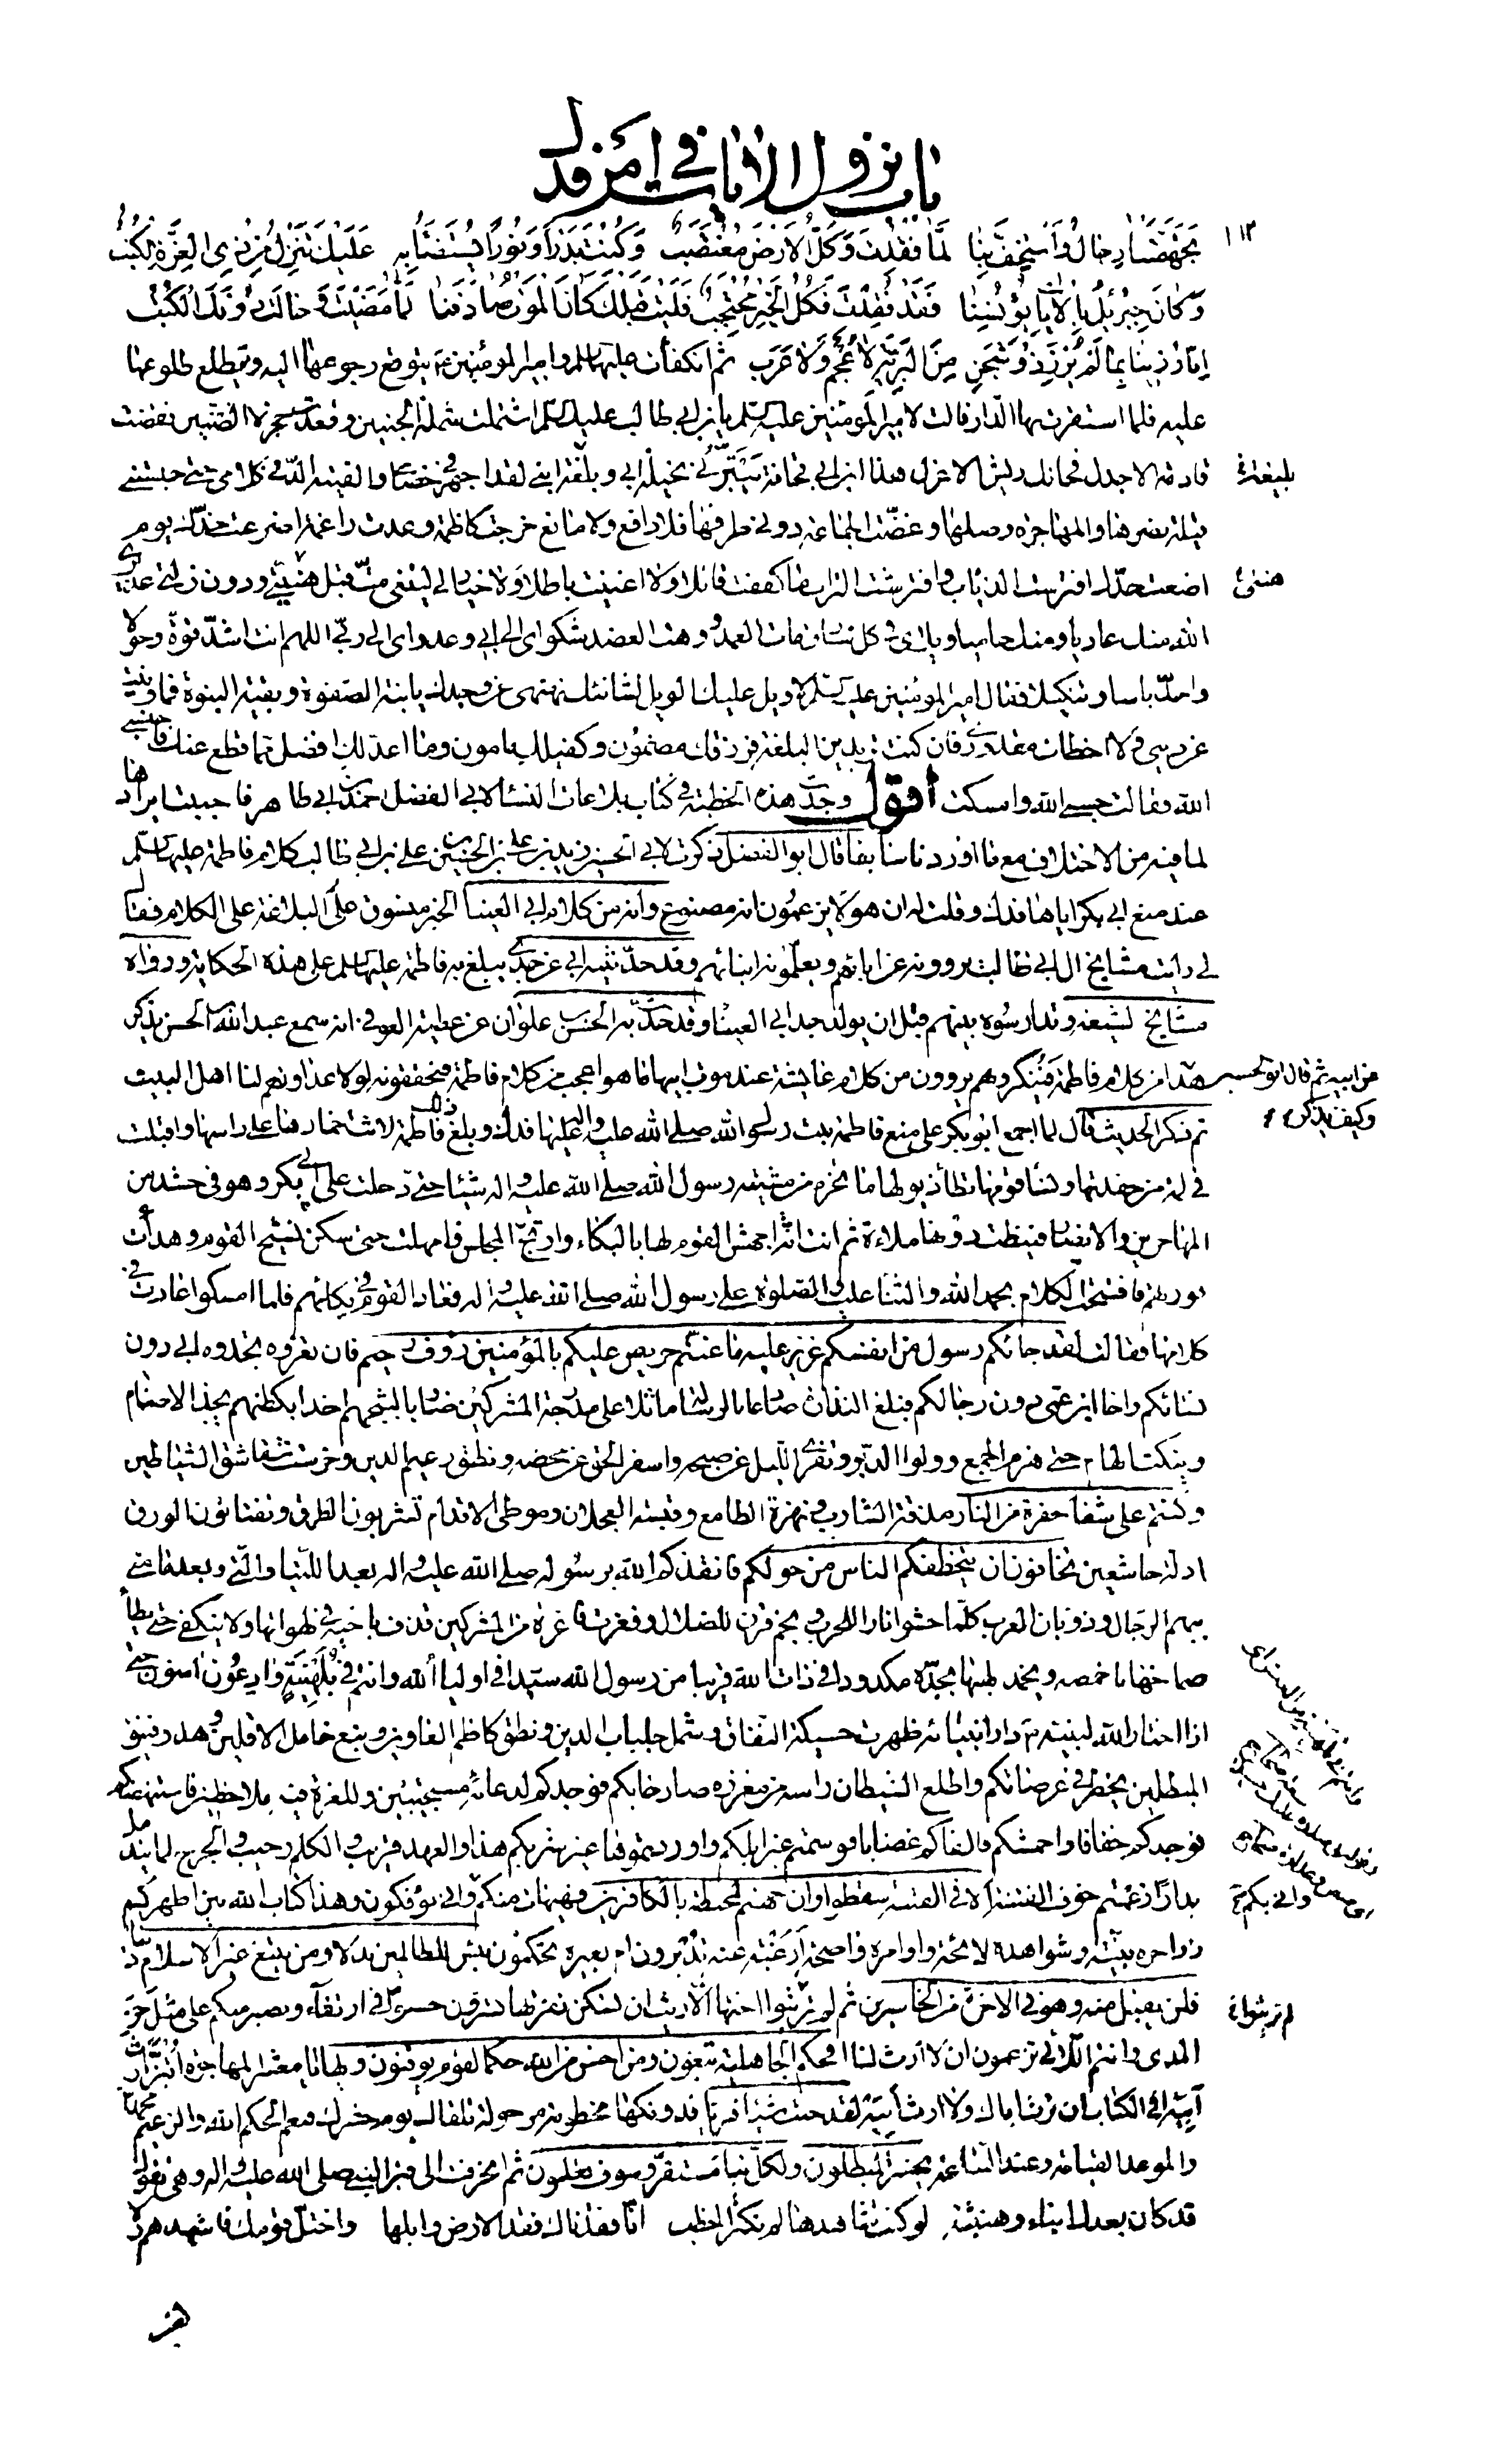 باب نزول الآيات في أمر فدك
١١٣
تجهّمتنا رجال واستخف بنا لمّا فقدت وكل الارض مغتصب وكنت بدرا ونورا يستضاء به عليك تنزل من ذي العزة الكتب
وكان جبرئيل بالآيات يؤنسنا فقد فقدت فكل الخير محتجب فليت قبلك كان الموت صادفنا لما مضيت وحالت دونك الكثب
انا رزينا بما لم يرز ذو شجن من البرية لا عجم ولا عرب ثم انكفأت عليها السلم وامير المؤمنين ع يتوقع رجوعها اليه ويتطلع طلوعها
عليه فلما استقرت بها الدار قالت لامير المؤمنين عليه السلم يابن ابي طالب عليك السلم اشتملت شملة الجنين وقعدت حجرة الظنين نقضت
قادمة الاجدل فخانك ريش الاعزل هذا ابن ابي قحافة يبتزني نحيلة ابي وبلغة ابني لقد اجهر في خصامي والفيته الد في كلامي حتى حبستني
قيلة نصرها والمهاجرة وصلها وغضت الجماعة دوني طرفها فلا دافع ولا مانع خرجت كاظمة وعدت راغمة اضرعت خدك يوم
اضعت حدك افترست الذئاب وافترشت التراب ما كففت قائلا ولا اغنيت باطلا ولا خيار لي ليتني مت قبل هنيتي ودون زلتي عذيري
الله منك عاديا ومنك حاميا ويلاي في كل شارق مات العمد ووهت العضد شكواي الى ابي وعدواي الى ربي اللهم انت اشد قوة وحولا
واحد باسا وتنكيلا فقال امير المؤمنين عليه السلم لا ويل عليك الويل لشانئك نهنهي عن وجدك يا ابنة الصفوة وبقية النبوة فما ونيت
عن ديني ولا اخطات مقدوري فان كنت تريدين البلغة فرزقك مضمون وكفيلك مامون وما اعد لك افضل مما قطع عنك فاحتسبي
الله فقالت حسبي الله وامسكت أقول وجدت هذه الخطبة في كتاب بلاغات النساء لابي الفضل احمد بن ابي طاهر فاحببت ايرادها
لما فيه من الاختلاف مع ما اوردنا سابقا قال ابو الفضل ذكرت لابي الحسين زيد بن علي بن الحسين بن علي بن ابي طالب كلام فاطمة عليها السلم
عند منع ابي بكر اياها فدك وقلت له ان هؤلاء يزعمون انه مصنوع وانه من كلام ابي العيناء الخبر منسوق على البلاغة على الكلام فقال
لي رايت مشايخ ال ابي طالب يروونه عن ابائهم ويعلمونه ابنائهم وقد حدثنيه ابي عن جدي يبلغ به فاطمة عليها السلم على هذه الحكاية ورواه
مشايخ الشيعة وتدارسوه بينهم قبل ان يولد جد ابي العيناء وقد حدث به الحسن بن علوان عن عطية العوفي انه سمع عبد الله بن الحسن يذكره
هذا من كلام فاطمة فينكر وهم يروون من كلام عائشة عند موت ابيها ما هو اعجب من كلام فاطمة فيحققونه لولا عداوتهم لنا اهل البيت
ثم ذكر الحديث قال لما اجمع ابو بكر على منع فاطمة بنت رسول الله صلى الله عليه واله وعليها فدك وبلغ ذلك فاطمة لاثت خمارها على راسها واقبلت
في لمة من حفدتها ونساء قومها تطأ ذيولها ما تخرم من مشية رسول الله صلى الله عليه واله شيئا حتى دخلت على ابي بكر وهو في حشد من
المهاجرين والانصار فنيطت دونها ملاءة ثم انت انة اجهش القوم لها بالبكاء وارتج المجلس فامهلت حتى سكن نشيج القوم وهدأت
فورتهم فافتتحت الكلام بحمد الله والثناء عليه والصلوة على رسول الله صلى الله عليه واله فعاد القوم في بكائهم فلما امسكوا عادت في
كلامها فقالت لقد جائكم رسول من انفسكم عزيز عليه ما عنتم حريص عليكم بالمؤمنين رؤف رحيم فان تعزوه تجدوه ابي دون
نسائكم واخا ابن عمي دون رجالكم فبلغ النذارة صادعا بالرسالة مائلا على مدرجة المشركين ضاربا لثبجهم اخذا بكظمهم يجذ الاصنام
وينكت الهام حتى هزم الجمع وولوا الدبر وتفرى الليل عن صبحه واسفر الحق عن محضه ونطق زعيم الدين وخرست شقاشق الشياطين
وكنتم على شفا حفرة من النار مذقة الشارب ونهزة الطامع وقبسة العجلان وموطئ الاقدام تشربون الطرق وتقتاتون الورق
اذلة خاشعين تخافون ان يتخطفكم الناس من حولكم فانقذكم الله برسوله صلى الله عليه واله بعد اللتيا والتي وبعد ما مني
ببهم الرجال وذؤبان العرب كلما حشوا نارا للحرب ونجم قرن للضلال وفغرت فاغرة من المشركين قذف باخيه في لهواتها ولا ينكفئ حتى يطأ
صماخها باخمصه ويخمد لهبها بحده مكدودا في ذات الله قريبا من رسول الله سيدا في اولياء الله وانتم في بلهنية وادعون امنون حتى
اذا اختار الله لنبيه ص دار انبيائه ظهرت حسيكة النفاق وشمل جلباب الدين ونطق كاظم الغاوين ونبغ خامل الاقلين وهدر فنيق
المبطلين يخطر في عرصاتكم واطلع الشيطان راسه من مغرزه صارخا بكم فوجدكم لدعائه مستجيبين وللغرة فيه ملاحظين فاستنهضكم
فوجدكم خفافا واحمشكم فالفاكم غضابا فوسمتم غير ابلكم واوردتموها غير شربكم هذا والعهد قريب والكلم رحيب والجرح لما يندمل
بدارا زعمتم خوف الفتنة الا في الفتنة سقطوا وان جهنم لمحيطة بالكافرين فهيهات منكم وانى تؤفكون وهذا كتاب الله بين اظهركم
زواجره بينة وشواهده لائحة واوامره واضحة ارغبة عنه تدبرون ام بغيره تحكمون بئس للظالمين بدلا ومن يبتغ غير الاسلام دينا
فلن يقبل منه وهو في الاخرة من الخاسرين ثم لم تريثوا اختها الا ريث ان تسكن نفرتها تسرون حسوا في ارتغاء ونصبر منكم على مثل حز
المدى وانتم الان تزعمون ان لا ارث لنا افحكم الجاهلية تبغون ومن احسن من الله حكما لقوم يوقنون ويها يا معشر المهاجرة أابتز ارث
ابيه افي الكتاب ان ترث اباك ولا ارث ابيه لقد جئت شيئا فريا فدونكها مخطومة مرحولة تلقاك يوم حشرك فنعم الحكم الله والزعيم محمد
والموعد القيامة وعند الساعة يخسر المبطلون ولكل نبا مستقر وسوف تعلمون ثم انحرفت الى قبر النبي صلى الله عليه واله وهي تقول
قد كان بعدك انباء وهنبثة لو كنت شاهدها لم تكثر الخطب انا فقدناك فقد الارض وابلها واختل قومك فاشهدهم ولا
بليغة خ
هنيئتي خ
عن ابيه ثم قال ابو الحسين
وكيف يذكر
وانى بكم خ
لم تريثوا خ